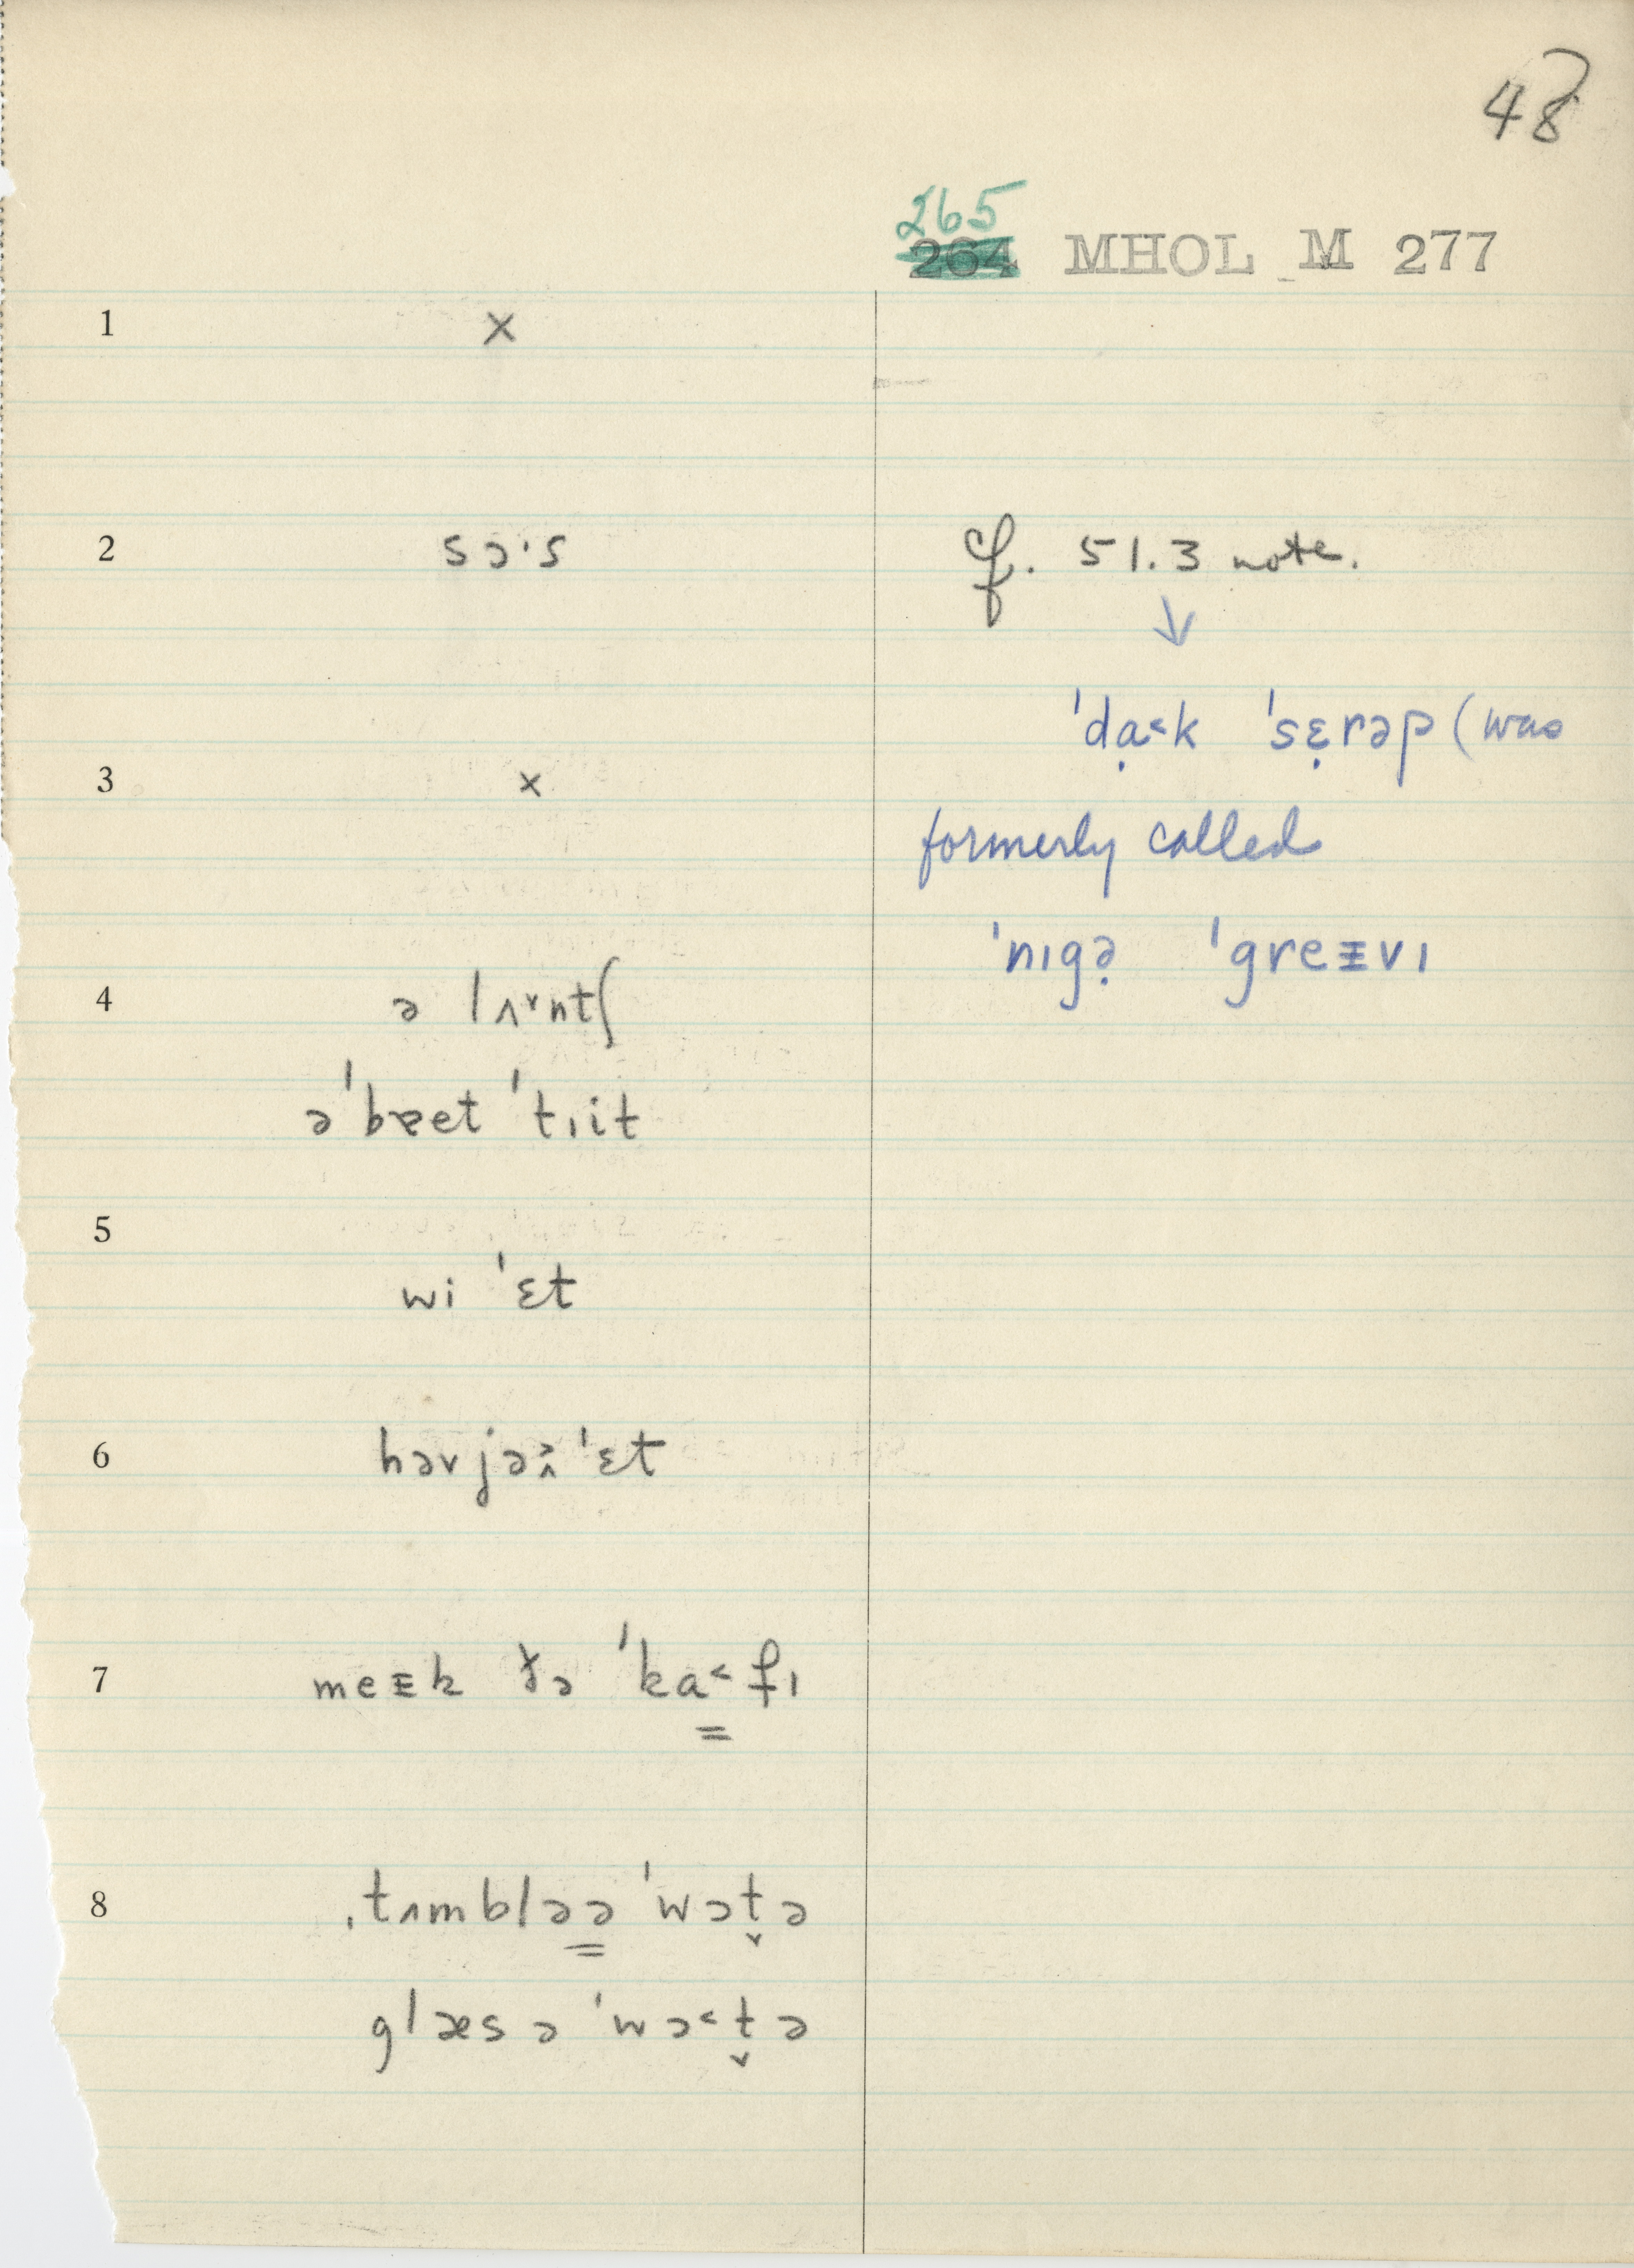 48
265
264 MHOL M 277
1 x
2 sɔ·s cf. 51.3 note.
↓
ˈdạ˂k ˈsɛ̣rəp (was
3 x
formerly called
ˈnɪgə̣ ˈgreᵻvɪ
4 ə lʌ˅ntʃ
əˈbɐet ˈtɪit
5
wi ˈɛt
6 həvjə ˈɛt
7 meᵻk ðə ˈka˂fɪ
8 ˌtʌmbləə ˈwɔt̬ə
glæs ə ˈwɔ˂t̬ə